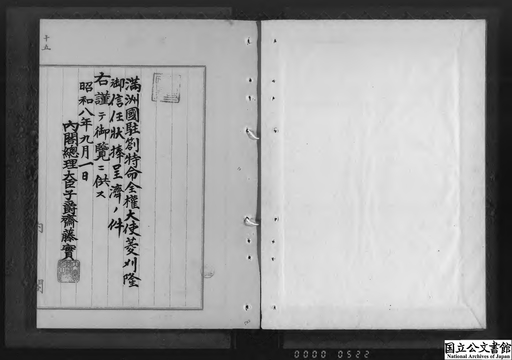 満洲國駐劄特命全權大使菱刈隆
御信任狀捧呈濟ノ件
右謹テ御覽ニ供ス
昭和八年九月一日
內閣總理大臣子爵齋藤實
十五
0000 0522
国立公文書館
National Archives of Japan